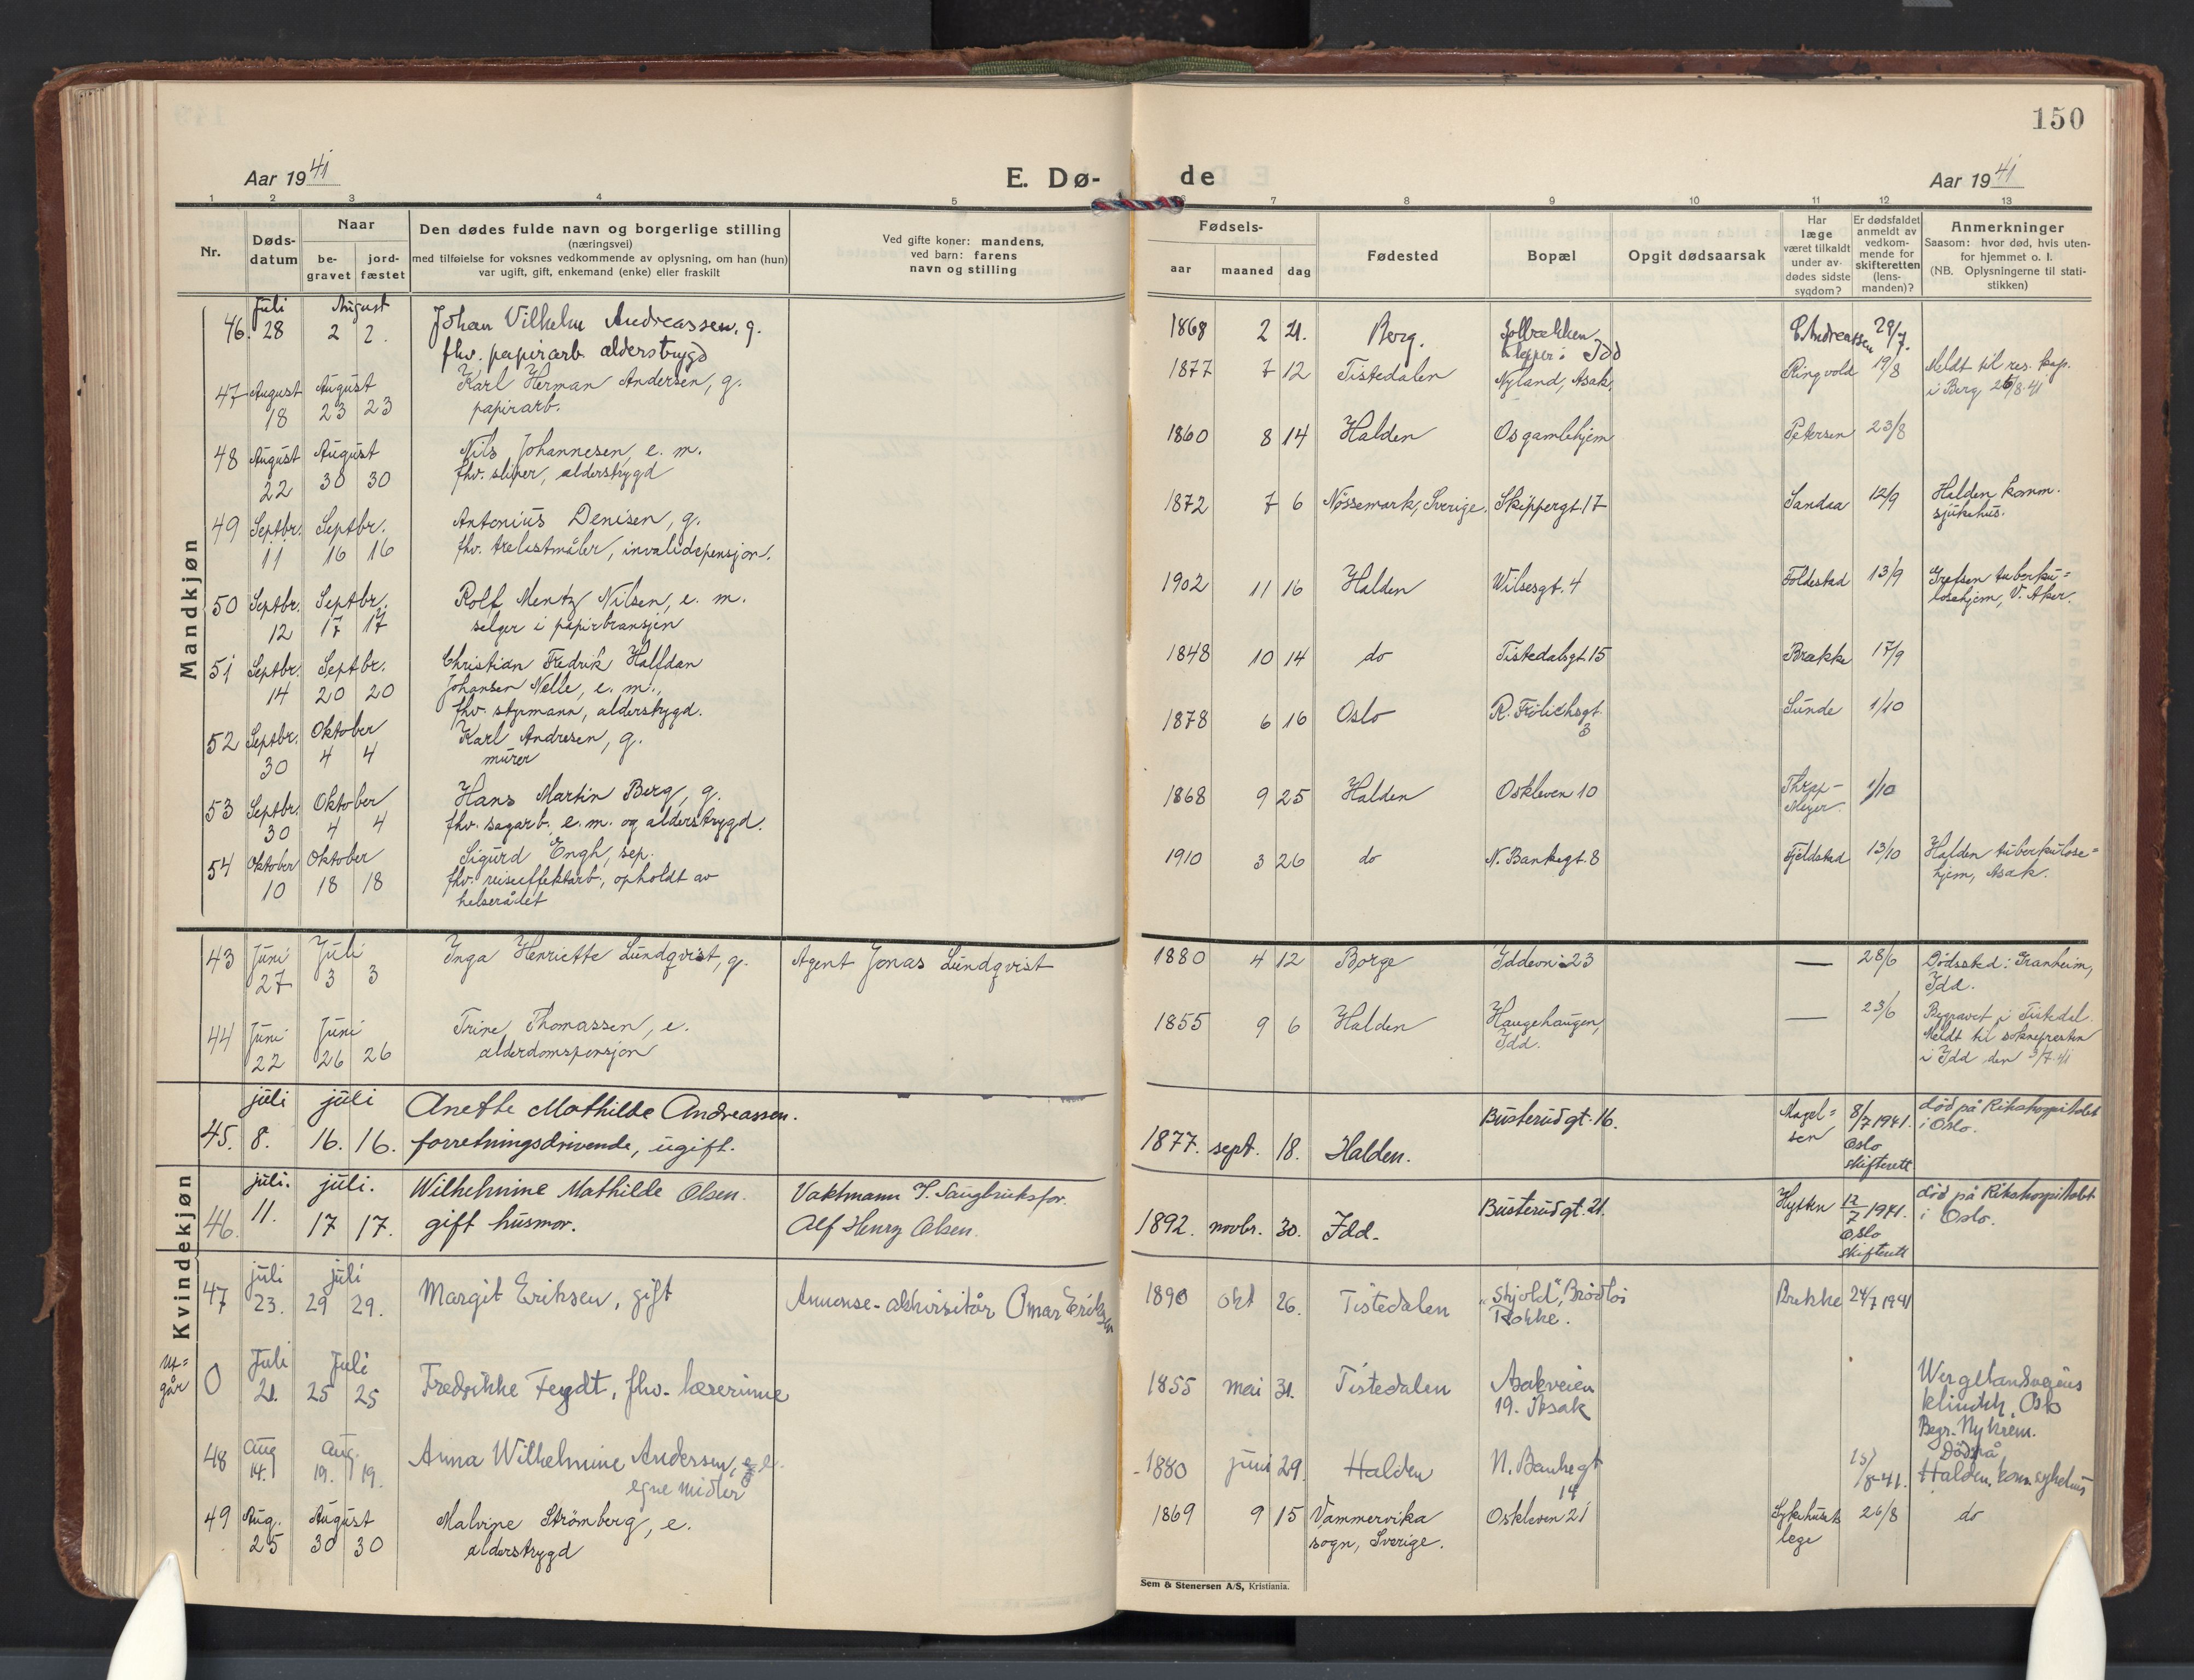 150
Aar 1941
E. Dø-
de
Aar 1941
1 2 3 4 5 7 8 9 10 11 12 13
Nr.
Døds-
datum
Naar
be-
gravet
jord-
fæstet
Den dødes fulde navn og borgerlige stilling
(næringsvei)
med tilføielse for voksnes vedkommende av oplysning, om han (hun)
var ugift, gift, enkemand (enke) eller fraskilt
Ved gifte koner: mandens,
ved barn: farens
navn og stilling
Fødsels-
aar maaned dag
Fødested
Bopæl
Opgit dødsaarsak
Har
læge
været tilkaldt
under av-
dødes sidste
sygdom?
Er dødsfaldet
anmeldt av
vedkom-
mende for
skifteretten
(lens-
manden)?
Anmerkninger
Saasom: hvor død, hvis uten-
for hjemmet o. l.
(NB. Oplysningerne til stati-
stikken)
Mandkjøn
Juli August
46. 28 2 2. Johan Vilhelm Andreassen, g.
fhv. papirarb. alderstrygd
1868 2 21. Berg. Idd Andreassen 29/7.
47 August August Karl Herman Andersen, g.
18 23 23 papirarb.
1877 7 12 Tistedalen Nyland, Asak, Ringvold 19/8 Meldt til res. kap.
i Berg 26/8 41
48 August August Nils Johannesen, e. m.
22 30 30 fhv. sliper, alderstrygd
1860 8 14 Halden Os gamlehjem Petersen 23/8
49 Septbr. Septbr. Antonius Denisen, g.
11 16 16 fhv. trelastmåler, invalidepensjon.
1872 7 6 Nössemark, Sverige. Skippergt. 17 Sandaa 12/9 Halden komm.
sjukehus.
50 Septbr. Septbr. Rolf Mentz Nilsen, e. m.
12 17 17 selger i papirbransjen
1902 11 16 Halden Wilsesgt. 4 Foldestad 13/9 Grefsen tuberku=
losehjem, V. Aker.
51 Septbr. Septbr. Christian Fredrik Halfdan
14 20 20 Johansen Nelle, e. m.,
fhv. styrmann, alderstrygd.
1848 10 14 do Tistedalsgt. 15 Brakke 17/9
52 Septbr. Oktober Karl Andresen, g.
30 4 4 murer
1878 6 16 Oslo R. Frölichsgt.
3
Sunde 1/10
53 Septbr. Oktober Hans Martin Berg, g.
30 4 4 fhv. sagarb. e. m. og alderstrygd.
1868 9 25 Halden Oskleven 10 Meyer. 1/10
54 Oktober Oktober Sigurd Engh, sep.
10 18 18 fhv. reiseeffektarb., opholdt av
helserådet
1910 3 26 do N. Bankegt. 8 Fjeldstad 13/10 Halden tuberkulose=
hjem, Asak.
Kvindekjøn
43 Juni Juli Inga Henriette Lundqvist, g. Agent Jonas Lundqvist
27 3 3
1880 4 12 Borge Iddevn 23 — 28/6 Dödssted: Granheim,
Idd.
44 Juni Juni Trine Thomassen, e.
22 26 26 alderdomspensjon
1855 9 6 Halden Haugehaugen,
Idd.
— 23/6 Begravet i Tistedal.
Meldt til soknepresten
i Idd den 3/7 41
juli juli Anette Mathilde Andreassen.
45. 8. 16. 16. forretningsdrivende, ugift.
1877. sept. 18. Halden. Busterudgt. 16. Magel=
sen
8/7 1941.
Oslo
skifterett
död på Rikshospitalet
i Oslo.
juli. juli. Wilhelmine Mathilde Olsen. Vaktmann
46. 11. 17 17. gift husmor. Alf Henry Olsen.
1892. novbr. 30. Idd. Busterudgt. 21. Hytten 12/7 1941.
Oslo
skifterett
död på Rikshospitalet
i Oslo.
47 juli juli Margit Eriksen, gift Annonse-akkvisitör Omar Eriksen
23. 29 29.
1890 okt 26. Tistedalen "Skjold", Brödlös
Rokke.
Brekke 24/7 1941
ut=
går
0 Juli Juli
21. 25 25 Fredrikke Feydt, fhv. lærerinne
1855 mai 31. Tistedalen Asakveien
19. Asak
Wergelandsveiens
klinikk, Oslo
Begr. Ny krem.
48 aug aug. Anna Wilhelmine Andersen, e.
14. 19. 19. egne midler
1880 juni 29. Halden N. Bankegt
14
15/8-41. Död på
Halden. kom. sykehus
49 Aug. August Malvine Strömberg, e.
25 30 30 alderstrygd
1869 9 15 Vammervika
sogn, Sverige.
Oskleven 21 Sykehusets
lege
26/8 do
Sem & Stenersen A/S, Kristiania.